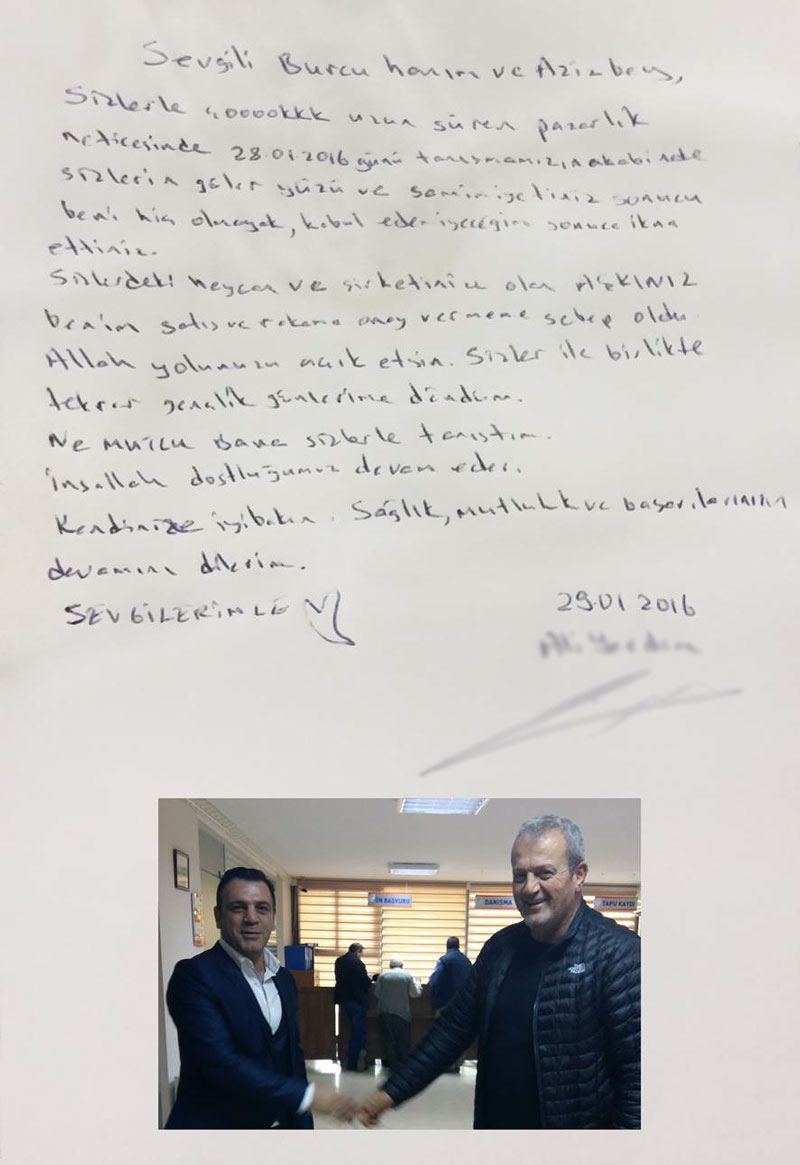 Sevgili Burcu hanım ve Aziz bey,
Sizlerle çooookkk uzun süren pazarlık
neticesinde 28.01.2016 günü tanışmamızın akabinde
sizlerin güler yüzü ve samimiyetiniz sonucu
beni hiç olmayak, kabul edemiyeceğim sonuca ikna
ettiniz.
Sizlerdeki heycan ve şirketinize olan AŞKINIZ
benim satış ve rakama onay vermeme sebep oldu.
Allah yolunuzu açık etsin. Sizler ile birlikte
tekrar gençlik günlerime döndüm.
Ne mutlu bana sizlerle tanıştım.
İnşallah dostluğumuz devam eder.
Kendinize iyi bakın. Sağlık, mutluluk ve başarılarınızın
devamını dilerim.
SEVGİLERİMLE
29.01 2016
ÖN BAŞVURU
DANIŞMA
TAPU KAYDI
THE NORTH FACE